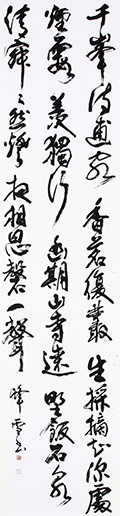 千峯待逋客香茗復叢生採摘知深處
煙霞羨獨行幽期山寺遠野飯石泉
清寂々然燈夜相思磬一聲